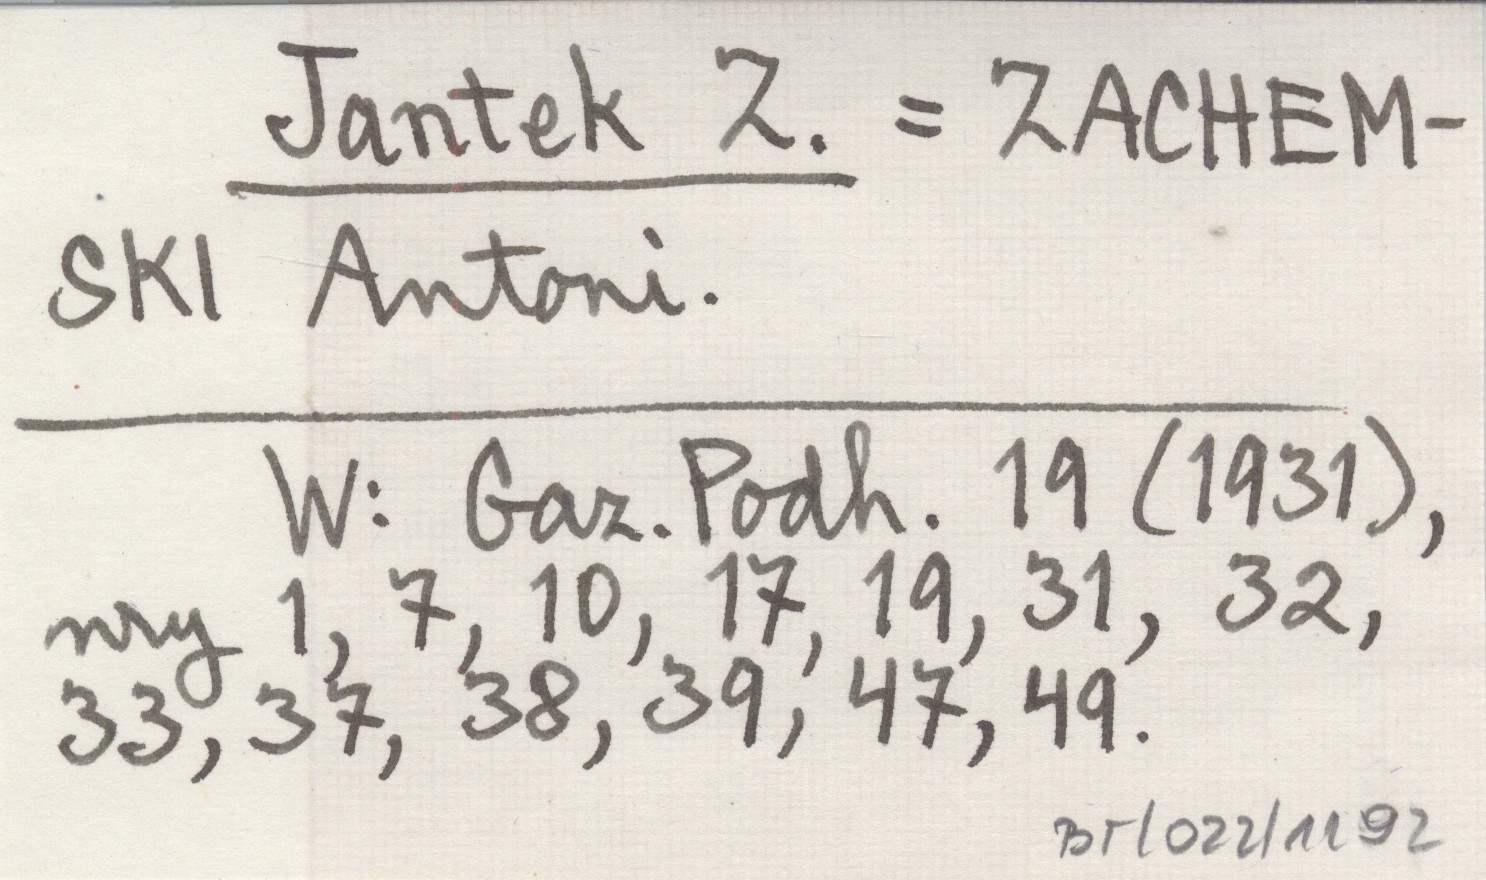 Jantek Z. = ZACHEM-
SKI Antoni.
W: Gaz. Podh. 19 (1931),
nry 1, 7, 10, 17, 19, 31, 32,
33, 37, 38, 39, 47, 49.
BT/022/1192